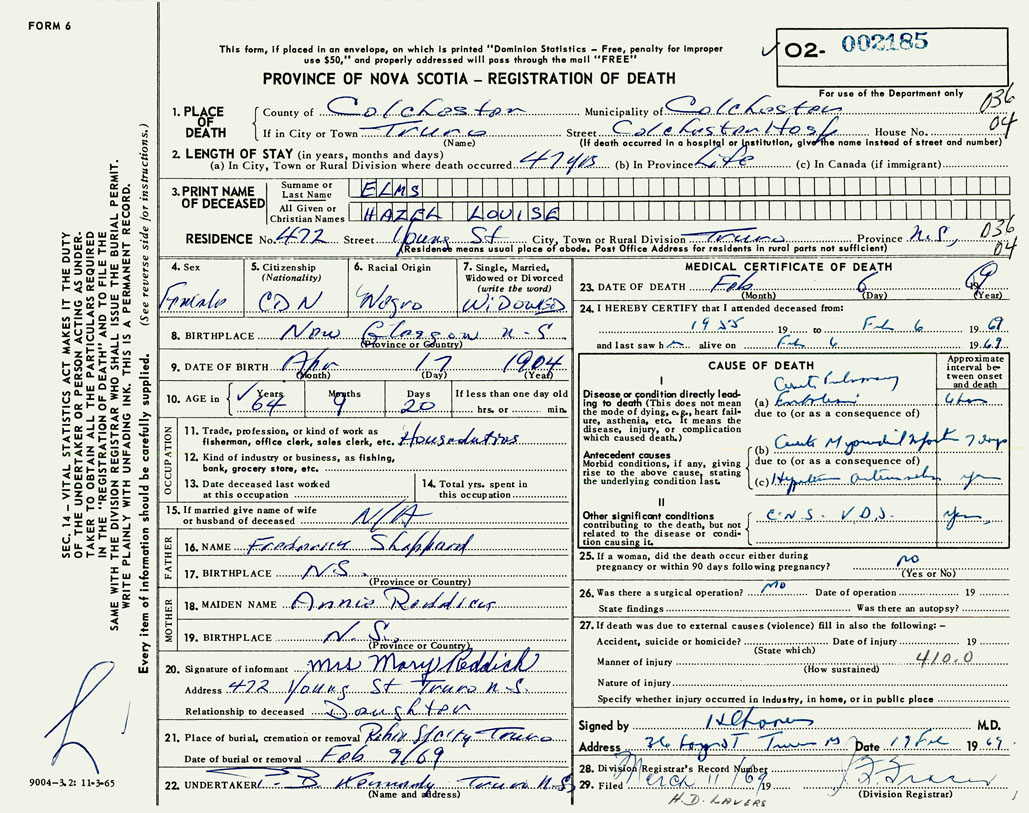 FORM 6
This form, if placed in an envelope, on which is printed "Dominion Statistics – Free, penalty for improper
use $50," and properly addressed will pass through the mail "FREE"
PROVINCE OF NOVA SCOTIA – REGISTRATION OF DEATH
O2- 002185
For use of the Department only
036
04
1. PLACE OF DEATH
County of Colchester Municipality of Colchester
If in City or Town Truro Street Colchester Hosp House No.
(Name) (If death occurred in a hospital or institution, give the name instead of street and number)
2. LENGTH OF STAY (in years, months and days)
(a) In City, Town or Rural Division where death occurred 47 yrs (b) In Province Life (c) In Canada (if immigrant)
3. PRINT NAME OF DECEASED
Surname or Last Name ELMS
All Given or Christian Names HAZEL LOUISE
RESIDENCE No. 472 Street Young St City, Town or Rural Division Truro Province N.S,
036
04
(Residence means usual place of abode. Post Office Address for residents in rural parts not sufficient)
4. Sex Female
5. Citizenship (Nationality) CDN
6. Racial Origin Negro
7. Single, Married, Widowed or Divorced (write the word) WiDowED
8. BIRTHPLACE New Glasgow N-S
(Province or Country)
9. DATE OF BIRTH Apr 17 1904
(Month) (Day) (Year)
10. AGE in Years 64 Months 9 Days 20 If less than one day old
hrs. or min.
OCCUPATION
11. Trade, profession, or kind of work as
fisherman, office clerk, sales clerk, etc. Houseduties
12. Kind of industry or business, as fishing,
bank, grocery store, etc.
13. Date deceased last worked
at this occupation
14. Total yrs. spent in
this occupation
15. If married give name of wife
or husband of deceased N/A
FATHER
16. NAME Frederick Sheppard
17. BIRTHPLACE N.S.
(Province or Country)
MOTHER
18. MAIDEN NAME Annie Reddick
19. BIRTHPLACE N.S.
(Province or Country)
20. Signature of informant Mrs Mary Reddick
Address 472 Young St Truro N.S.
Relationship to deceased Daughter
21. Place of burial, cremation or removal Truro
Date of burial or removal Feb 9/69
22. UNDERTAKER Kennedy Truro N.S
(Name and address)
MEDICAL CERTIFICATE OF DEATH
23. DATE OF DEATH Feb 6 69
(Month) (Day) (Year)
24. I HEREBY CERTIFY that I attended deceased from:
1955 19 to Feb 6 1969
and last saw h alive on Feb 6 1969
CAUSE OF DEATH
Approximate interval between onset and death
I
Disease or condition directly leading
to death (This does not mean
the mode of dying, e.g., heart failure,
asthenia, etc. It means the
disease, injury, or complication
which caused death.)
Acute Pulmonary
(a) Embolism
due to (or as a consequence of)
Antecedent causes
Morbid conditions, if any, giving
rise to the above cause, stating
the underlying condition last.
(b) Acute Myocardial Infarct 7 days
due to (or as a consequence of)
(c)
II
Other significant conditions
contributing to the death, but not
related to the disease or condition
causing it.
C.N.S. V.D.S. Yrs.
25. If a woman, did the death occur either during
pregnancy or within 90 days following pregnancy? no
(Yes or No)
26. Was there a surgical operation? no Date of operation 19
State findings Was there an autopsy?
27. If death was due to external causes (violence) fill in also the following: –
Accident, suicide or homicide? Date of injury 19
(State which)
Manner of injury 410.0
(How sustained)
Nature of injury
Specify whether injury occurred in industry, in home, or in public place
Signed by M.D.
Address Date 19 Feb 1969
28. Division Registrar's Record Number
29. Filed March 11/69 19
(Division Registrar)
H.D. LAVERS
SEC. 14 – VITAL STATISTICS ACT MAKES IT THE DUTY
OF THE UNDERTAKER OR PERSON ACTING AS UNDER-
TAKER TO OBTAIN ALL THE PARTICULARS REQUIRED
IN THE "REGISTRATION OF DEATH" AND TO FILE THE
SAME WITH THE DIVISION REGISTRAR WHO SHALL ISSUE THE BURIAL PERMIT.
WRITE PLAINLY WITH UNFADING INK. THIS IS A PERMANENT RECORD.
Every item of information should be carefully supplied. (See reverse side for instructions.)
9004–3.2: 11-3-65